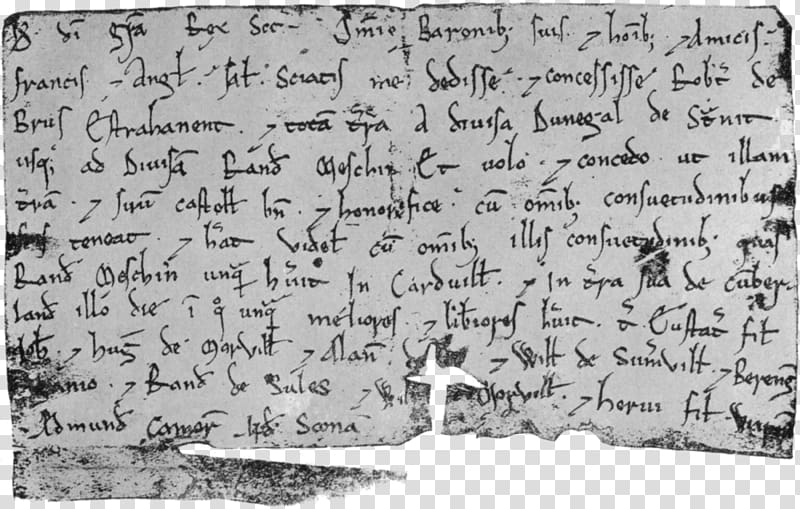 D̄ dī gr̄a Rex Scot̄ Om̄ib; Baronib; suis ⁊ hōib; ⁊ Amicis
francis ⁊ Angł. sał. Sciatis me dedisse ⁊ concessisse Rob̄t de
Brus Estrahanent. ⁊ totā t̄rā A divisa Dunegal de St̄nit
usq; ad Divisā Rand̄ Meschin Et volo ⁊ concedo ut illam
t̄rā. ⁊ suū castell̄ bn̄ ⁊ honorifice cū om̄ib; consuetudinibus
suis teneat ⁊ h̄at videł cū om̄ib; illis consuetudinib; quas
Rand̄ Meschin unq̄ h̄uit In Carduill̄ ⁊ In t̄ra sua de Cūber-
land illo die ī q̊ unq̄ meliores ⁊ lib̄iores h̄uit. T̄ Eustat̄ fił
Joh̄ ⁊ hug̅ de Morvill̄ ⁊ Alan̄ ⁊ Will̄ de Sum̄vill̄ ⁊ Bereng̅
⁊ Rand̄ de Sules ⁊ Will̄ Morvill̄ ⁊ hervi fił
Ædmund̄ Camer̄ Ap̄d Sconā